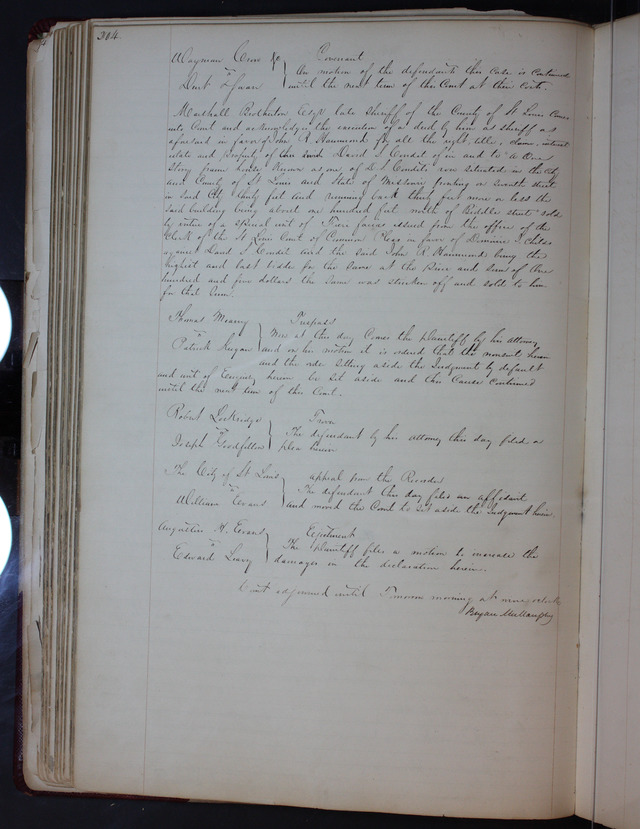 304.
Wayman Crow &c Covenant
vs On motion of the defendants this case is continued
Dent & Swan until the next term of this Court at their costs.
Marshall Brotherton Esqr late sheriff of the County of St Louis Comes
into Court and acknowledges the execution of a deed by him as sheriff as
aforesaid in favor of John R Hammond for all the right, title, claim, interest
estate and property of David S Cundit of in and to a One
Story frame house known as one of D S Cundits row situated in the City
and County of St Louis and State of Missouri fronting on Seventh street
in said City thirty feet and running back thirty feet more or less the
said building being about one hundred feet north of Biddle street sold
by virtue of a special writ of Fieri facias issued from the office of the
Clerk of the St Louis Court of Common Pleas in favor of Childs
against David S Cundit and the said John R Hammond being the
highest and last bidder for the same at the price and sum of One
hundred and five dollars the same was stricken off and sold to him
for that Sum.
Thomas Trespass
vs Now at this day Comes the plaintiff by his attorney
Patrick and on his motion it is ordered that the nonsuit herein
and the rule setting aside the Judgment by default
and writ of Enquiry herein be set aside and this Cause Continued
until the next term of this Court.
Robert Lockridge Trover
vs The defendant by his attorney this day filed a
Joseph Goodfellow plea herein
The City of St Louis appeal from the Recorder
vs The defendant this day files an affidavit
William Evans and moved the Court to set aside the Judgment herein.
Augustus H. Evans Ejectment
vs The plaintiff files a motion to increase the
Edward Leavy damages in the declaration herein.
Court adjourned until Tomorrow morning at nine oclock
Bryan Mullanphy